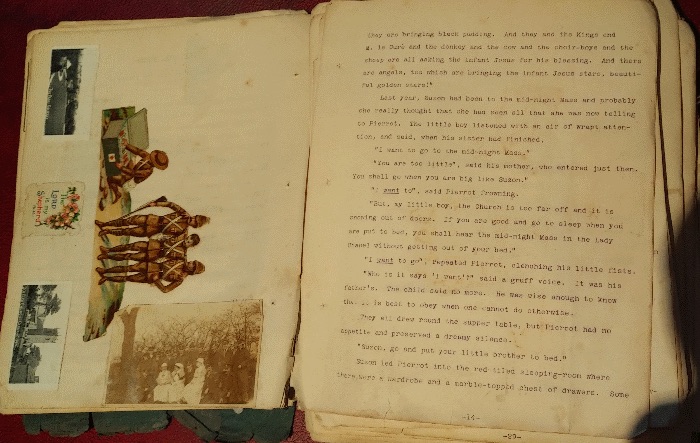 The
LORD
is my
Shepherd
they are bringing black pudding. And they and the Kings and
M. le Curé and the donkey and the cow and the choir-boys and the
sheep are all asking the Infant Jesus for his blessing. And there
are angels, too which are bringing the Infant Jesus stars, beauti-
ful golden stars!"
Last year, Suzon had been to the mid-night Mass and probably
she really thought that she had seen all that she was now telling
to Pierrot. The little boy listened with an air of wrapt atten-
tion, and said, when his sister had finished.
"I want to go to the mid-night Mass."
"You are too little", said his mother, who entered just then.
You shall go when you are big like Suzon."
"I want to", said Pierrot frowning.
"But, my little boy, the Church is too far off and it is
snowing out of doors. If you are good and go to sleep when you
are put to bed, you shall hear the mid-night Mass in the Lady
Chapel without getting out of your bed."
"I want to go", repeated Pierrot, clenching his little fists.
"Who is it says 'I want'?" said a gruff voice. It was his
father's. The child said no more. He was wise enough to know
that it is best to obey when one cannot do otherwise.
They all drew round the supper table, but Pierrot had no
appetite and preserved a dreamy silence.
"Suzon, go and put your little brother to bed."
Suzon led Pierrot into the red-tiled sleeping-room where
there were a wardrobe and a marble-topped chest of drawers. Some
-14-
-20-